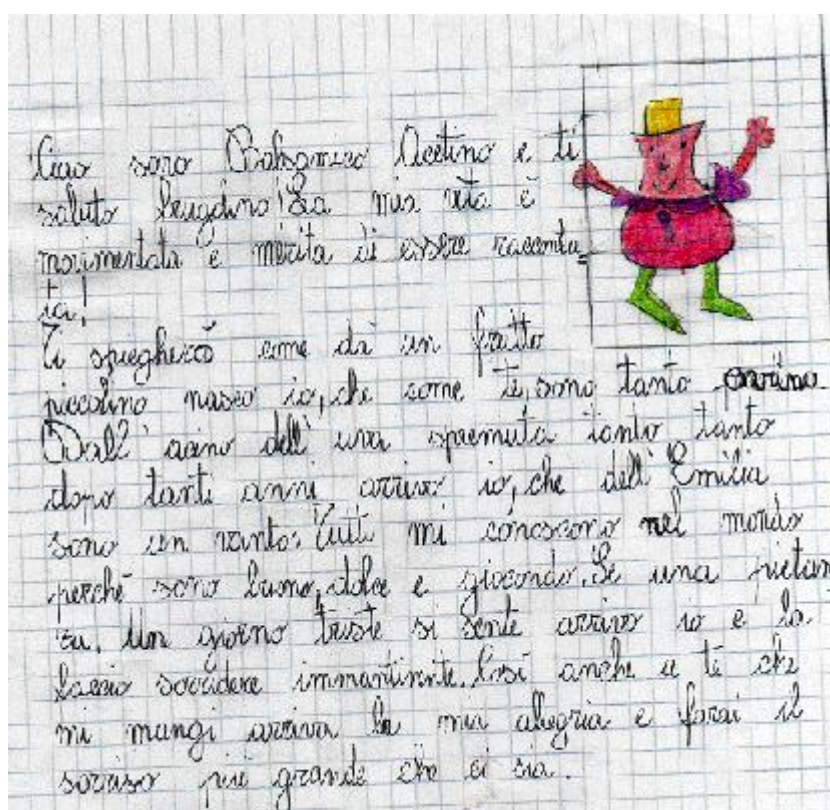 Ciao sono Balsamico Acetino e ti
saluto ! La mia vita è
movimentata e merita di essere racconta=
ta!
Ti spiegherò come da un frutto
piccolino nasco io, che come te, sono tanto
Dall'acino dell'uva spremuta tanto tanto
dopo tanti anni arrivo io, che dell'Emilia
sono un vanto. Tutti mi conoscono nel mondo
perché sono buono, dolce e giocondo. Se una pietan
za, un giorno triste si sente arrivo io e la
faccio sorridere immantinente. Così anche a te che
mi mangi arriva la mia allegria e farai il
sorriso più grande che ci sia.